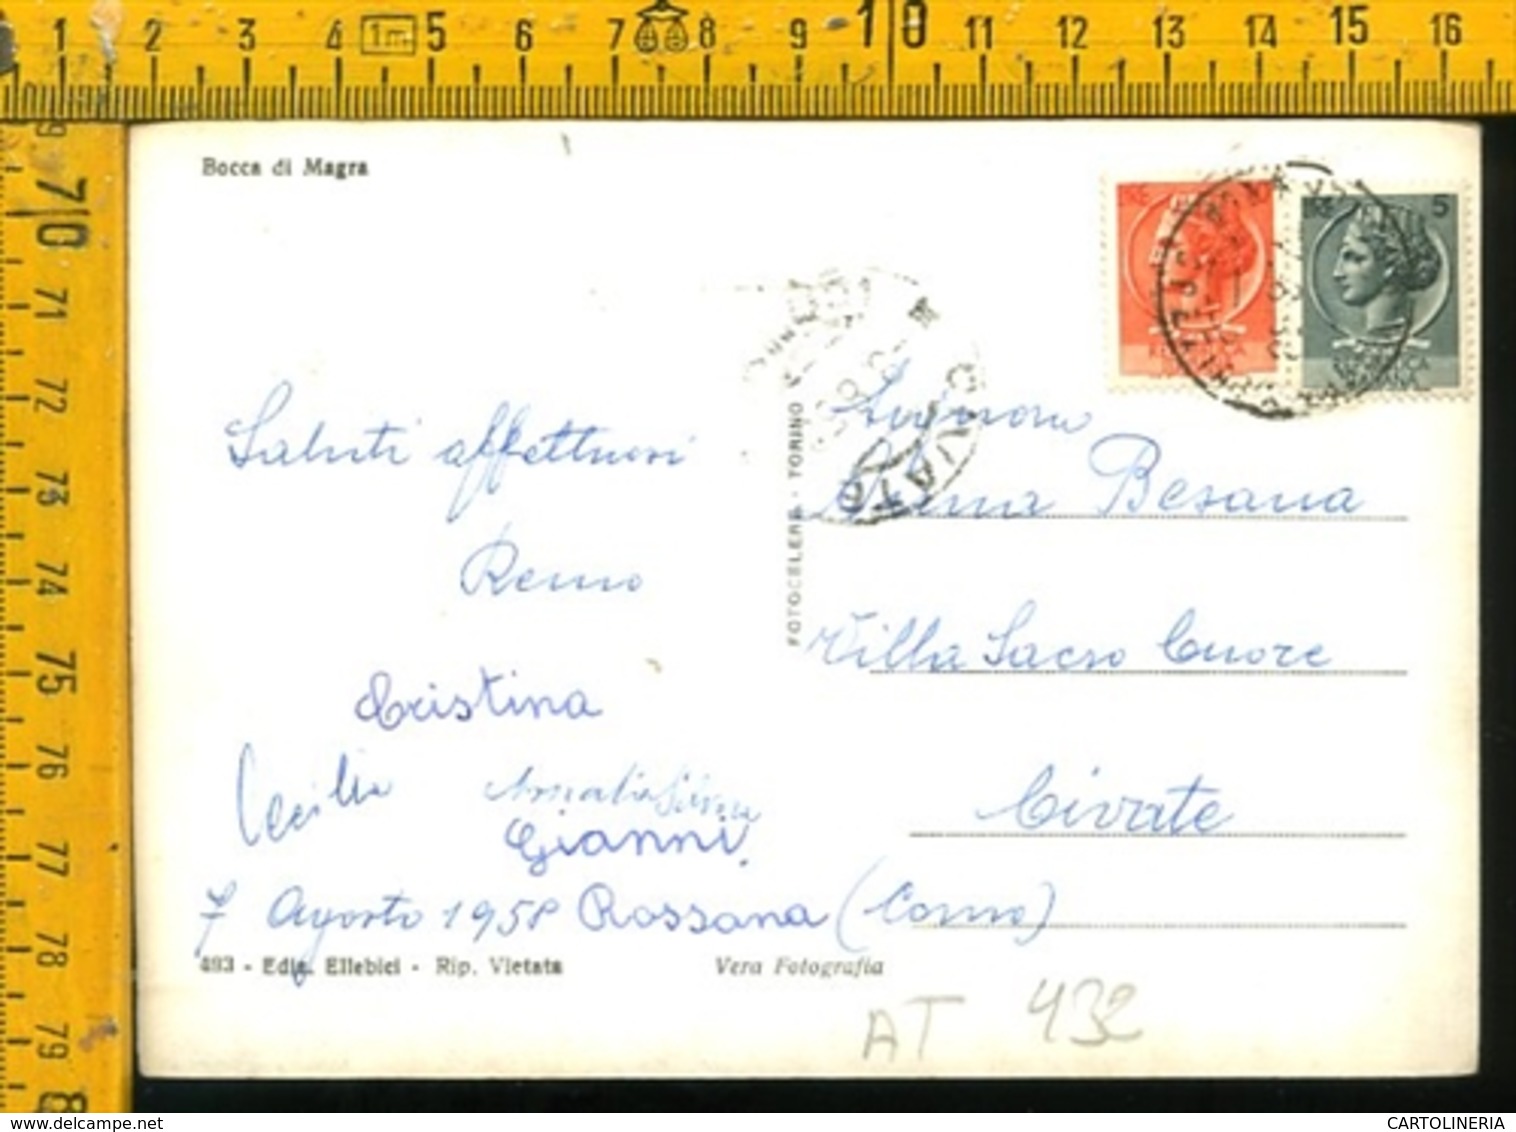 1 2 3 4 1m 5 6 7 8 9 10 11 12 13 14 15 16
70 71 72 73 74 75 76 77 78 79 8
Bocca di Magra
5
CIVATE
FOTOCELERE - TORINO
Saluti affettuosi
Remo
Cristina
Cecilia Amalia Silvia
Gianni
7 Agosto 1958 Rossana
Signora
Besana
Villa Sacro Cuore
Civate
(Como)
493 - Ediz. Ellebici - Rip. Vietata
Vera Fotografia
AT 432
CARTOLINERIA